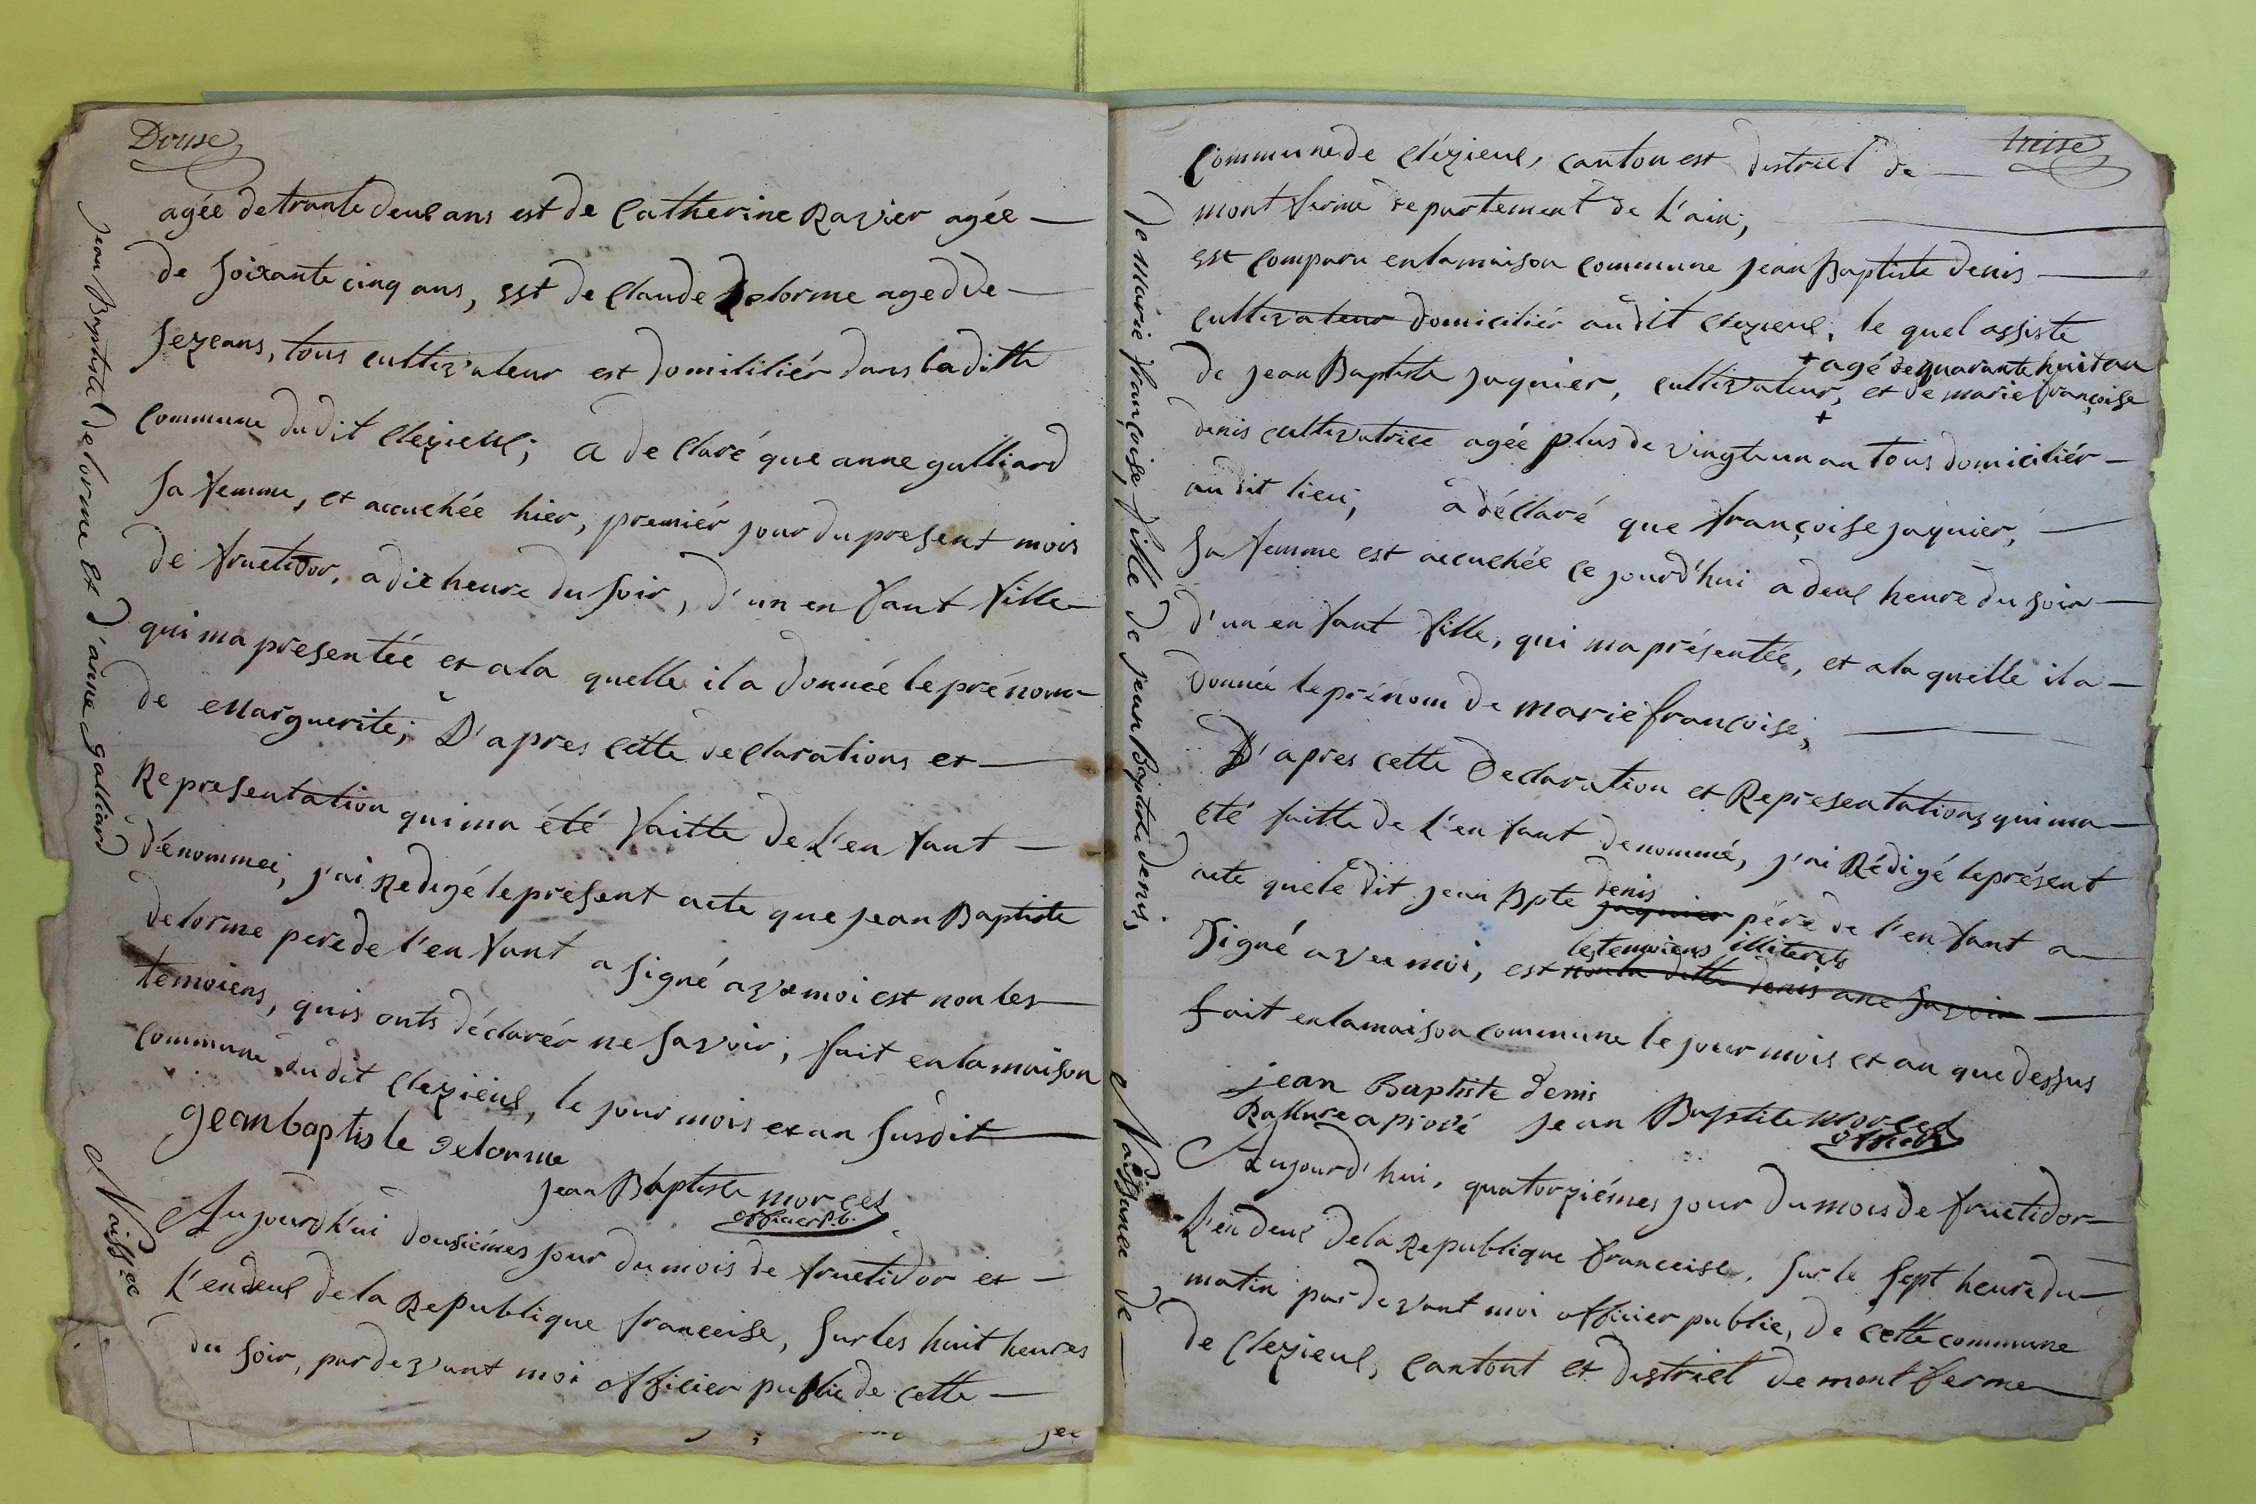 Douse
agée de trante deux ans est de Catherine Ravier agée
de soixante cinq ans, est de Claude Delorme aged de
sezeans, tous cultivateur est domililiér dans la ditte
commune du dit Clezieux; a de claré que anne gulliard
sa femme, et accuchée hier, premiér jour du present mois
de fructidor, a dix heure du soir, d'un en fant fille
qui ma presentée et a la quelle il a donnée le prénom
de Marguerite; D'apres cette declarations et
Representation qui ma été faitte de L'en fant
dénommei, j'ai Redigé le present acte que jean Baptiste
delorme pere de l'en fant a signé avec moi est non les
temoiens, quis onts déclarér ne savoir; fait en la maison
commune du dit Clezieux, le jour mois et an susdit
gean baptiste delorme
Jean Baptiste morcel
officier p.b.
Aujourdh'ui dousiémes jour du mois de fructidor et
L'en deux de la Republique franceise, sur les huit heures
du soir, par devant moi officier public de cette
jean Baptiste delorme et d'anne galliard
Naissce
treise
Commune de Clézieux, canton est district de
mont ferme departement de L'ain,
est comparu en la maison commune jean Baptiste denis
cultivateur domiciliér au dit Clezieux, le quel assiste
+ agé de quarante huit an
de jean Baptiste jaquier, cultivateur, + et de marie françoise
denis cultivatrice agée plus de vingt un an tous domiciliér
au dit lieu; a déclaré que françoise jaquier,
sa femme est accuchée ce jourd'hui a deux heure du soir
d'un en fant fille, qui ma présentée, et a la quelle il a
donnée le prénom de marie françoise,
D'apres cette Declaration et Representations qui ma
été faitte de L'en fant denommé, j'ai Rédigé le présent
denis
acte que le dit jean Bpte jaquier pére de l'en fant a
les temoiens illiterets
signé avec moi, est non la ditte denis ane savoir
fait en la maison commune le jour mois et an que dessus
jean Baptiste denis
Ratture aprové Jean Baptiste morcel
officier
Aujourd'hui, quatorziémes jour du mois de fructidor
L'en deux de la Republique franceise, sur le sept heure du
matin par devant moi officier public, de cette commune
de Clezieux, Cantont et district de mont ferme
de Marie françoise, fille de jean Baptiste denis,
Naissance de